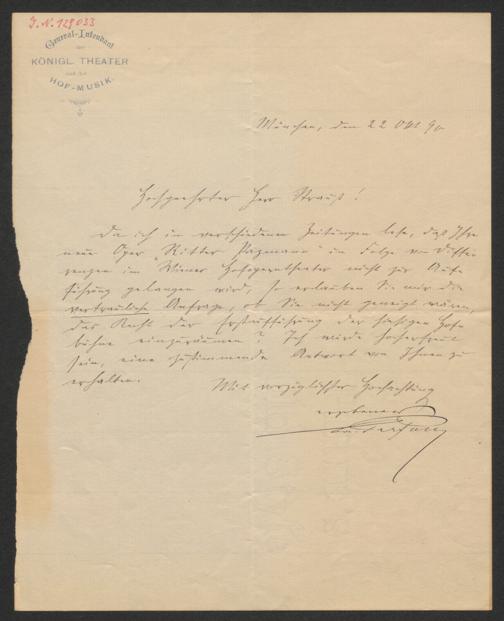 J.N. 129033
General-Intendant
der
KÖNIGL. THEATER
und der
HOF-MUSIK.
München, den 22 Okt 90
Hochgeehrter Herr Strauß!
Da ich in verschiedenen Zeitungen lese, daß Ihre
neue Oper „Ritter Pázmán“ in Folge von Diffe-
renzen im Wiener Hofoperntheater nicht zur Auf-
führung gelangen wird, so erlauben Sie mir die
vertrauliche Anfrage, ob Sie nicht geneigt wären,
das Recht der Erstaufführung der hiesigen Hof-
bühne einzuräumen? Ich würde hocherfreut
sein, eine zustimmende Antwort von Ihnen zu
erhalten.
Mit vorzüglicher Hochachtung
ergebenst